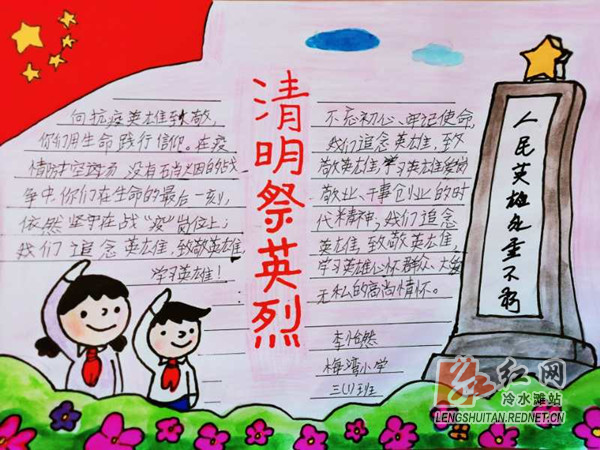 清明祭英烈
向抗疫英雄致敬,
你们用生命践行信仰。在疫
情防控这场没有硝烟的战
争中,你们在生命的最后一刻,
依然坚守在战“疫”岗位上;
我们追念英雄,致敬英雄,
学习英雄!
不忘初心、牢记使命,
我们追念英雄,致
敬英雄,学习英雄爱岗
敬业、干事创业的时
代精神;我们追念
英雄,致敬英雄,
学习英雄心怀群众、大
无私的高尚情怀。
李怡然
梅湾小学
三(1)班
人民英雄永垂不朽
红网
冷水滩站
LENGSHUITAN.REDNET.CN